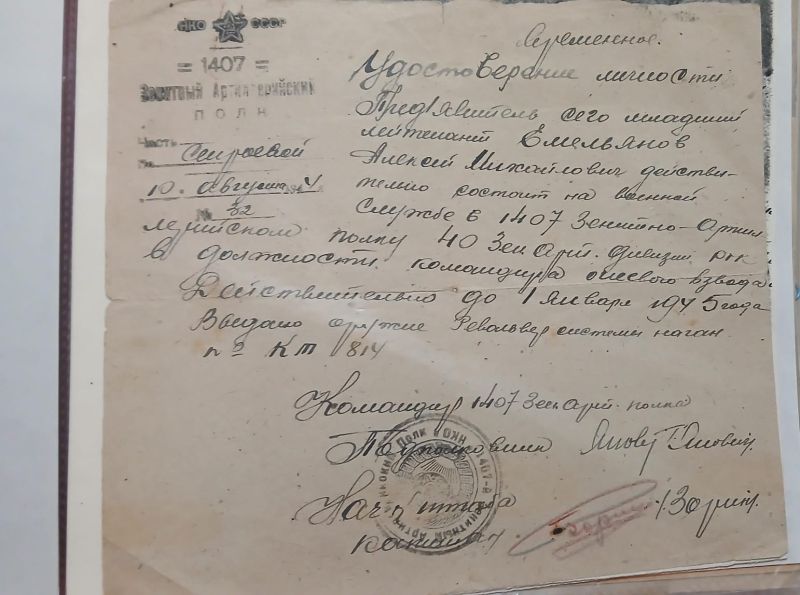 НКО СССР
= 1407 =
Зенитный Артиллерийский
ПОЛК
Часть
10. августа 1944
№ 32
Временное.
Удостоверение личности
Пред'явитель сего младший
лейтенант Емельянов
Алексей Михайлович действи-
тельно состоит на военной
службе в 1407 Зенитно-Артил
лерийском полку 40 Зен. Арт. дивизии ргк
в должности командира огневого взвода
Действительно до 1 января 1945 года
Выдано оружие Револьвер системы наган
№ КТ 814
Командир 1407 Зен Арт. полка
Подполковник
Нач штаба
капитан /Зорин/.
НКО 1407-й Зенитный Артиллерийский Полк